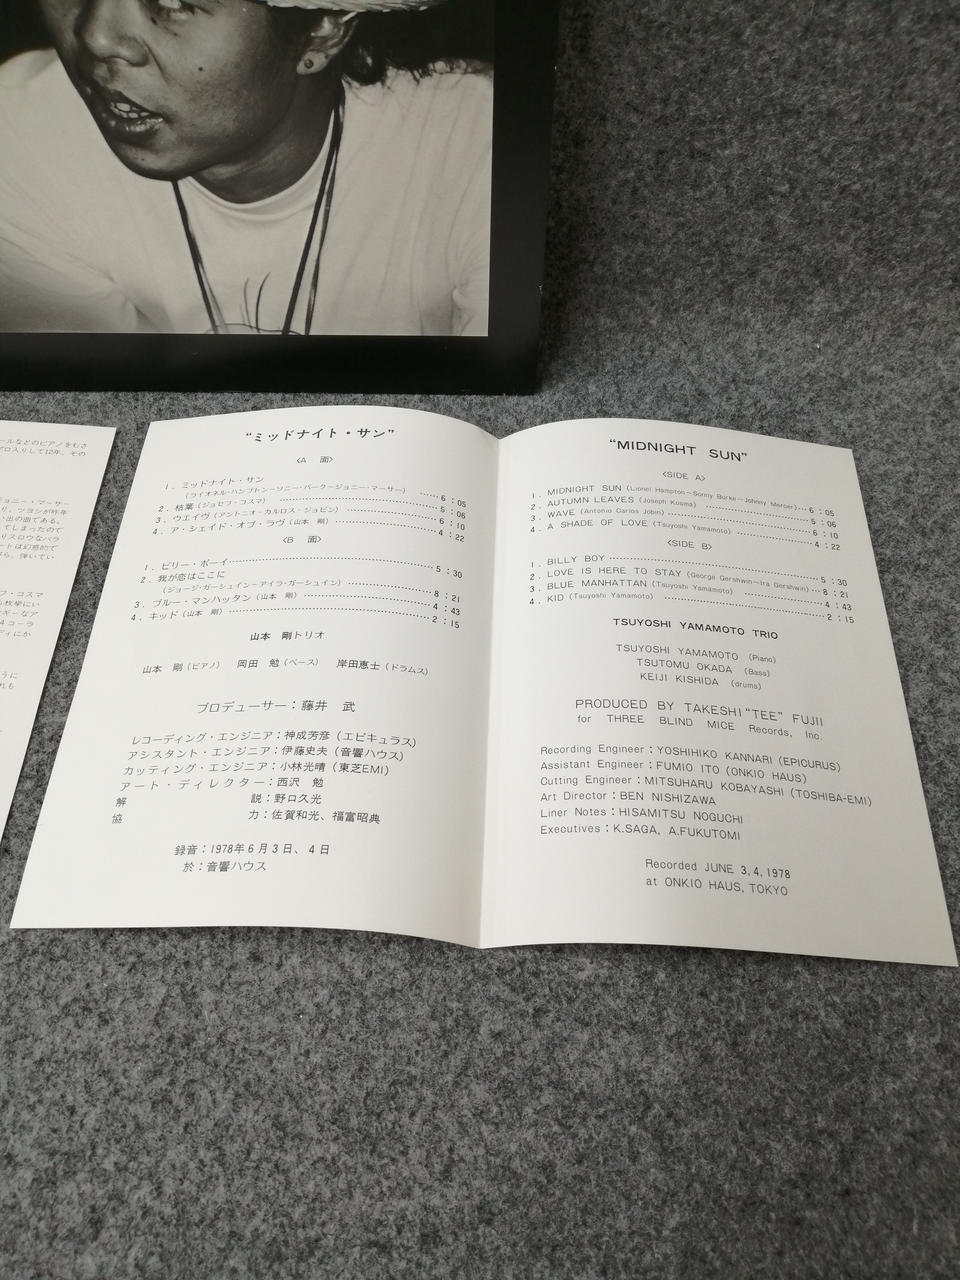 ールなどのピアノをむさ
プロ入りして12年、その
ジョニー・マーサー
り、ツヨシが昨年
い出の曲である。
てしまったので
リスロウなバラ
ートは幻想的で
がら、弾いてい
フ・コスマ
も枚挙にい
ギーなア
4コーラ
ディにか
うに
れも
“ミッドナイト・サン”
〈A 面〉
1. ミッドナイト・サン
(ライオネル・ハンプトン−ソニー・バーク−ジョニー・マーサー) ……6：05
2. 枯葉(ジョセフ・コスマ) ……5：06
3. ウエイヴ(アントニオ・カルロス・ジョビン) ……6：10
4. ア・シェイド・オブ・ラヴ(山本 剛) ……4：22
〈B 面〉
1. ビリー・ボーイ……5：30
2. 我が恋はここに
(ジョージ・ガーシュイン−アイラ・ガーシュイン) ……8：21
3. ブルー・マンハッタン(山本 剛) ……4：43
4. キッド(山本 剛) ……2：15
山本 剛トリオ
山本 剛(ピアノ) 岡田 勉(ベース) 岸田恵士(ドラムス)
プロデューサー：藤井 武
レコーディング・エンジニア：神成芳彦(エピキュラス)
アシスタント・エンジニア：伊藤史夫(音響ハウス)
カッティング・エンジニア：小林光晴(東芝EMI)
アート・ディレクター：西沢 勉
解 説：野口久光
協 力：佐賀和光、福富昭典
録音：1978年6月3日、4日
於：音響ハウス
“MIDNIGHT SUN”
〈SIDE A〉
1. MIDNIGHT SUN (Lionel Hampton−Sonny Burke−Johnny Mercer)……6：05
2. AUTUMN LEAVES (Joseph Kosma) ……5：06
3. WAVE (Antonio Carlos Jobin) ……6：10
4. A SHADE OF LOVE (Tsuyoshi Yamamoto) ……4：22
〈SIDE B〉
1. BILLY BOY ……5：30
2. LOVE IS HERE TO STAY (George Gershwin−Ira Gershwin) ……8：21
3. BLUE MANHATTAN (Tsuyoshi Yamamoto) ……4：43
4. KID (Tsuyoshi Yamamoto) ……2：15
TSUYOSHI YAMAMOTO TRIO
TSUYOSHI YAMAMOTO (Piano)
TSUTOMU OKADA (Bass)
KEIJI KISHIDA (drums)
PRODUCED BY TAKESHI “TEE” FUJII
for THREE BLIND MICE Records, Inc.
Recording Engineer：YOSHIHIKO KANNARI (EPICURUS)
Assistant Engineer：FUMIO ITO (ONKIO HAUS)
Cutting Engineer：MITSUHARU KOBAYASHI (TOSHIBA-EMI)
Art Director：BEN NISHIZAWA
Liner Notes：HISAMITSU NOGUCHI
Executives：K.SAGA, A.FUKUTOMI
Recorded JUNE 3, 4, 1978
at ONKIO HAUS, TOKYO